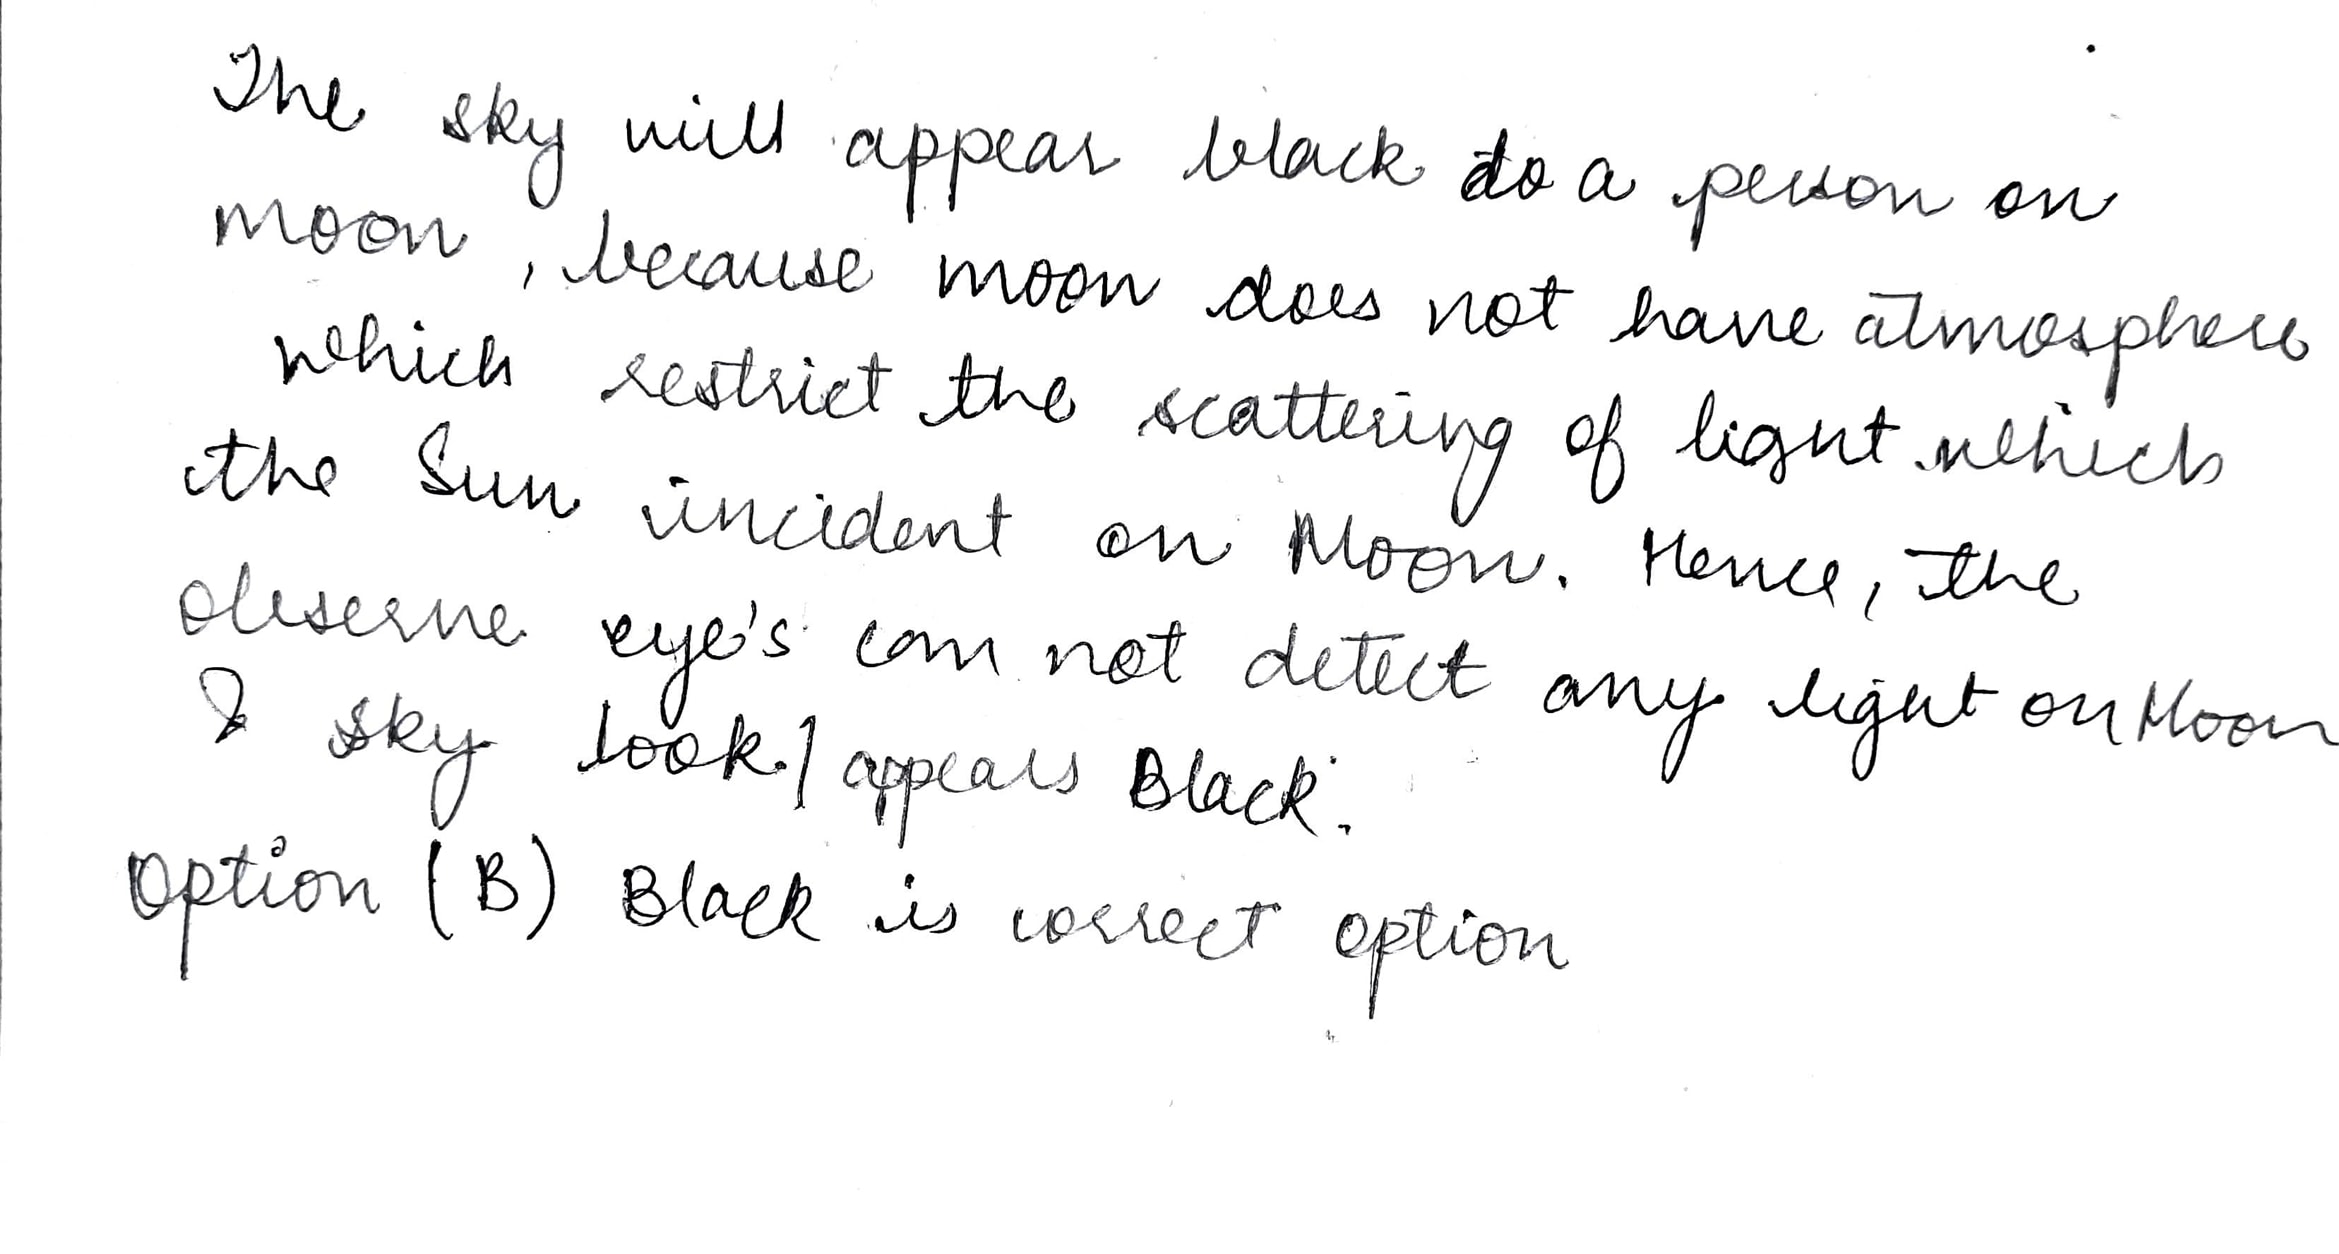 The sky will appear black to a person on
moon, because moon does not have atmosphere
which restrict the scattering of light which
the Sun incident on Moon. Hence, the
observe eye's can not detect any light on Moon
& sky look/appears Black.
Option (B) Black is correct option